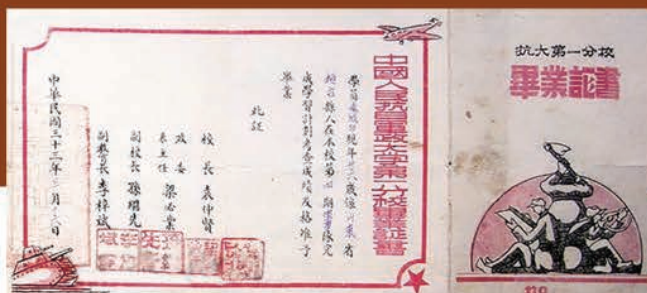 抗大第一分校
畢業証書
no
中國人民抗日軍政大學第一分校畢業証書
學員 現年廿八歲係山東省
縣人在本校第四期 隊完
成學習計劃考查成績及格准予
畢業
此証
校長 袁仲賢
政委
系主任 梁必業
副校長 孫繼先
副教育長 李梓斌
中華民國三十三年 月 日